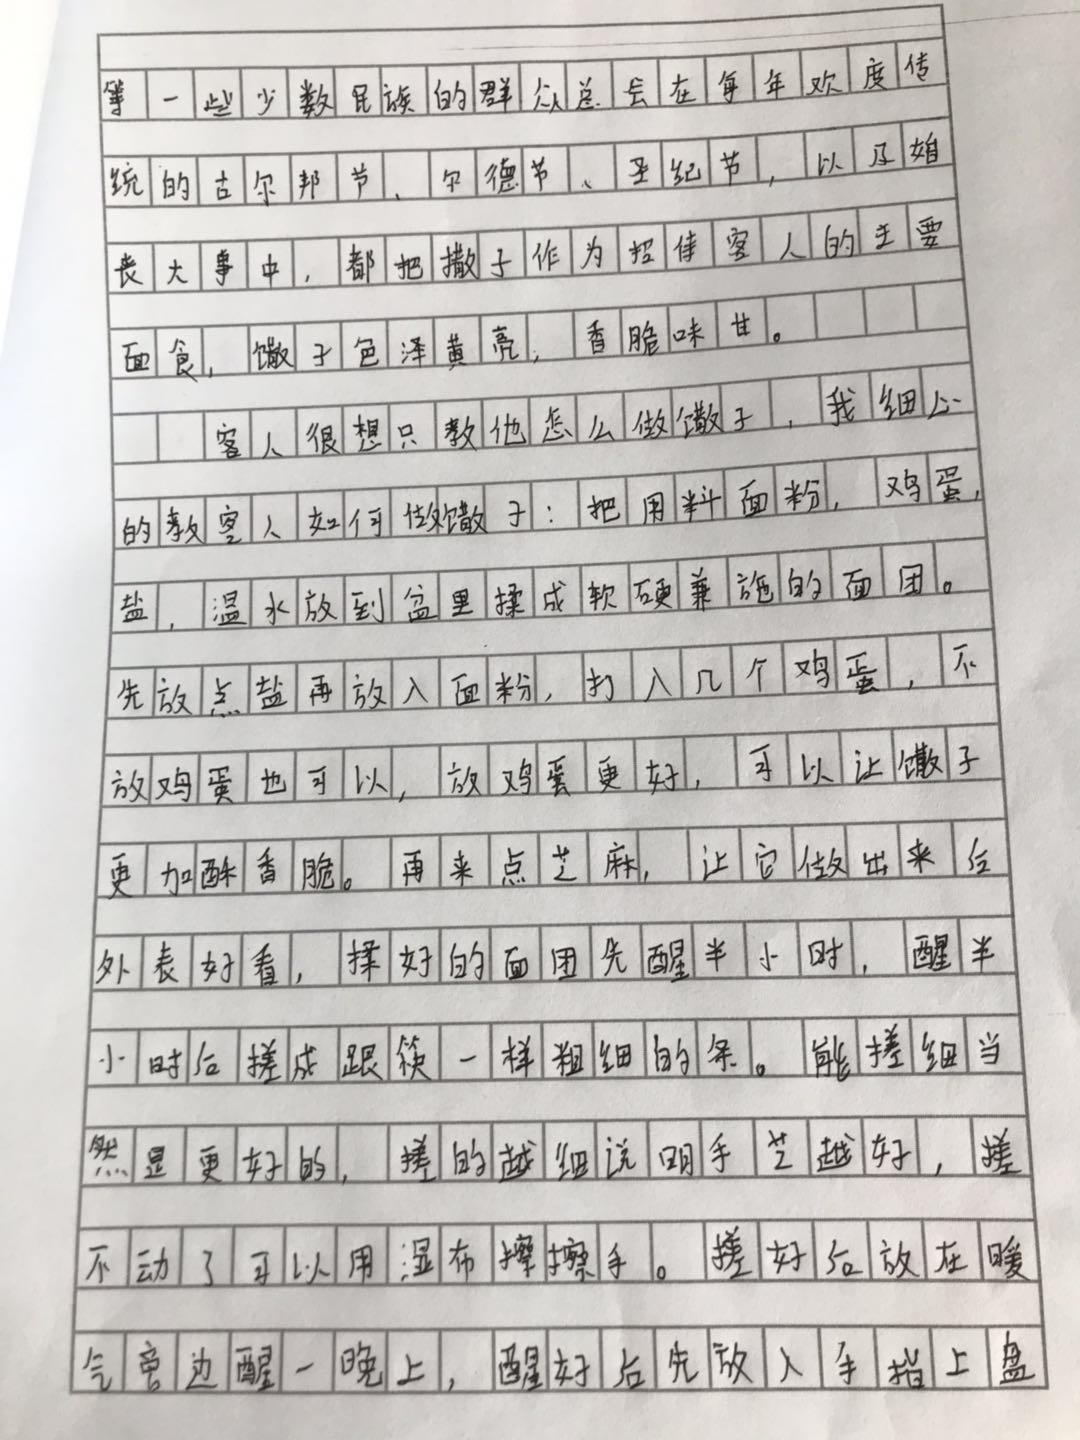 等一些少数民族的群众总会在每年欢度传
统的古尔邦节、尔德节、圣纪节，以及婚
丧大事中，都把撒子作为招待客人的主要
面食，馓子色泽黄亮，香脆味甘。
客人很想只教他怎么做馓子，我细心
的教客人如何做馓子：把用料面粉，鸡蛋，
盐，温水放到盆里揉成软硬兼施的面团。
先放点盐再放入面粉，打入几个鸡蛋，不
放鸡蛋也可以，放鸡蛋更好，可以让馓子
更加酥香脆。再来点芝麻，让它做出来后
外表好看，揉好的面团先醒半小时，醒半
小时后搓成跟筷一样粗细的条。能搓细当
然是更好的，搓的越细说明手艺越好，搓
不动了可以用湿布擦擦手。搓好后放在暖
气旁边醒一晚上，醒好后先放入手指上盘